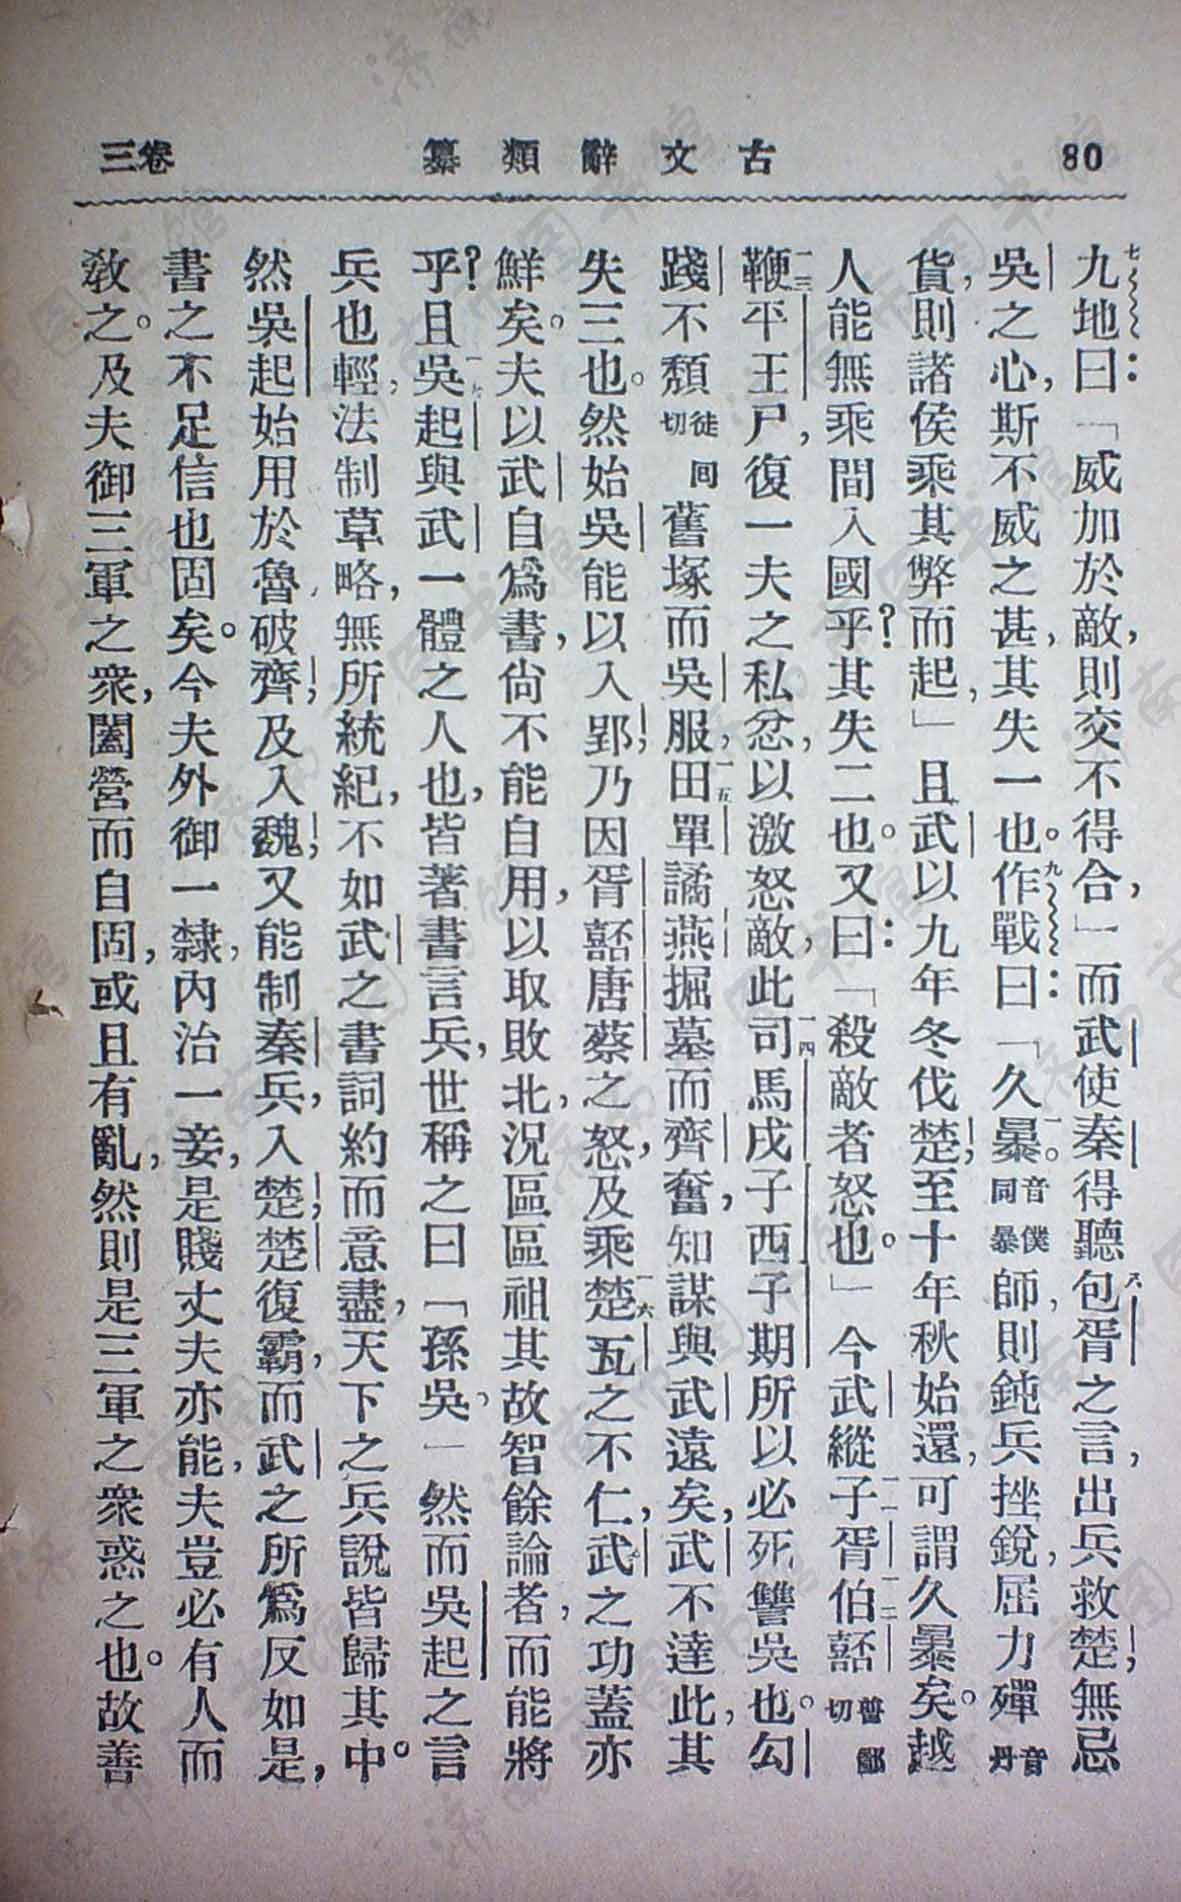 80 古文辭類纂 卷三
七九地曰：「威加於敵，則交不得合，」而武使秦得聽八包胥之言，出兵救楚，無忌
吳之心，斯不威之甚，其失一也。九作戰曰：「久一〇暴音僕同暴師，則鈍兵挫銳，屈力殫音丹
貨，則諸侯乘其弊而起，」且武以九年冬伐楚，至十年秋始還，可謂久暴矣。越
人能無乘間入國乎？其失二也。又曰：「殺敵者怒也。」今武縱一一子胥一二伯嚭普鄙切
一三鞭平王尸，復一夫之私忿，以激怒敵，此一四司馬戌子西子期所以必死讐吳也。勾
踐不頹徒回切舊塚而吳服，一五田單譎燕掘墓而齊奮，知謀與武遠矣，武不達此，其
失三也。然始吳能以入郢，乃因胥嚭唐蔡之怒，及乘楚一六瓦之不仁，武之功蓋亦
鮮矣。夫以武自爲書，尙不能自用，以取敗北，況區區祖其故智餘論者，而能將
乎？且一七吳起與武一體之人也，皆著書言兵，世稱之曰「孫吳。」然而吳起之言
兵也，輕法制，草略，無所統紀，不如武之書詞約而意盡，天下之兵說皆歸其中。
然吳起始用於魯，破齊，及入魏，又能制秦兵，入楚，楚復霸，而武之所爲反如是，
書之不足信也固矣。今夫外御一隸，內治一妾，是賤丈夫亦能，夫豈必有人而
敎之。及夫御三軍之衆，闔營而自固，或且有亂，然則是三軍之衆惑之也。故善